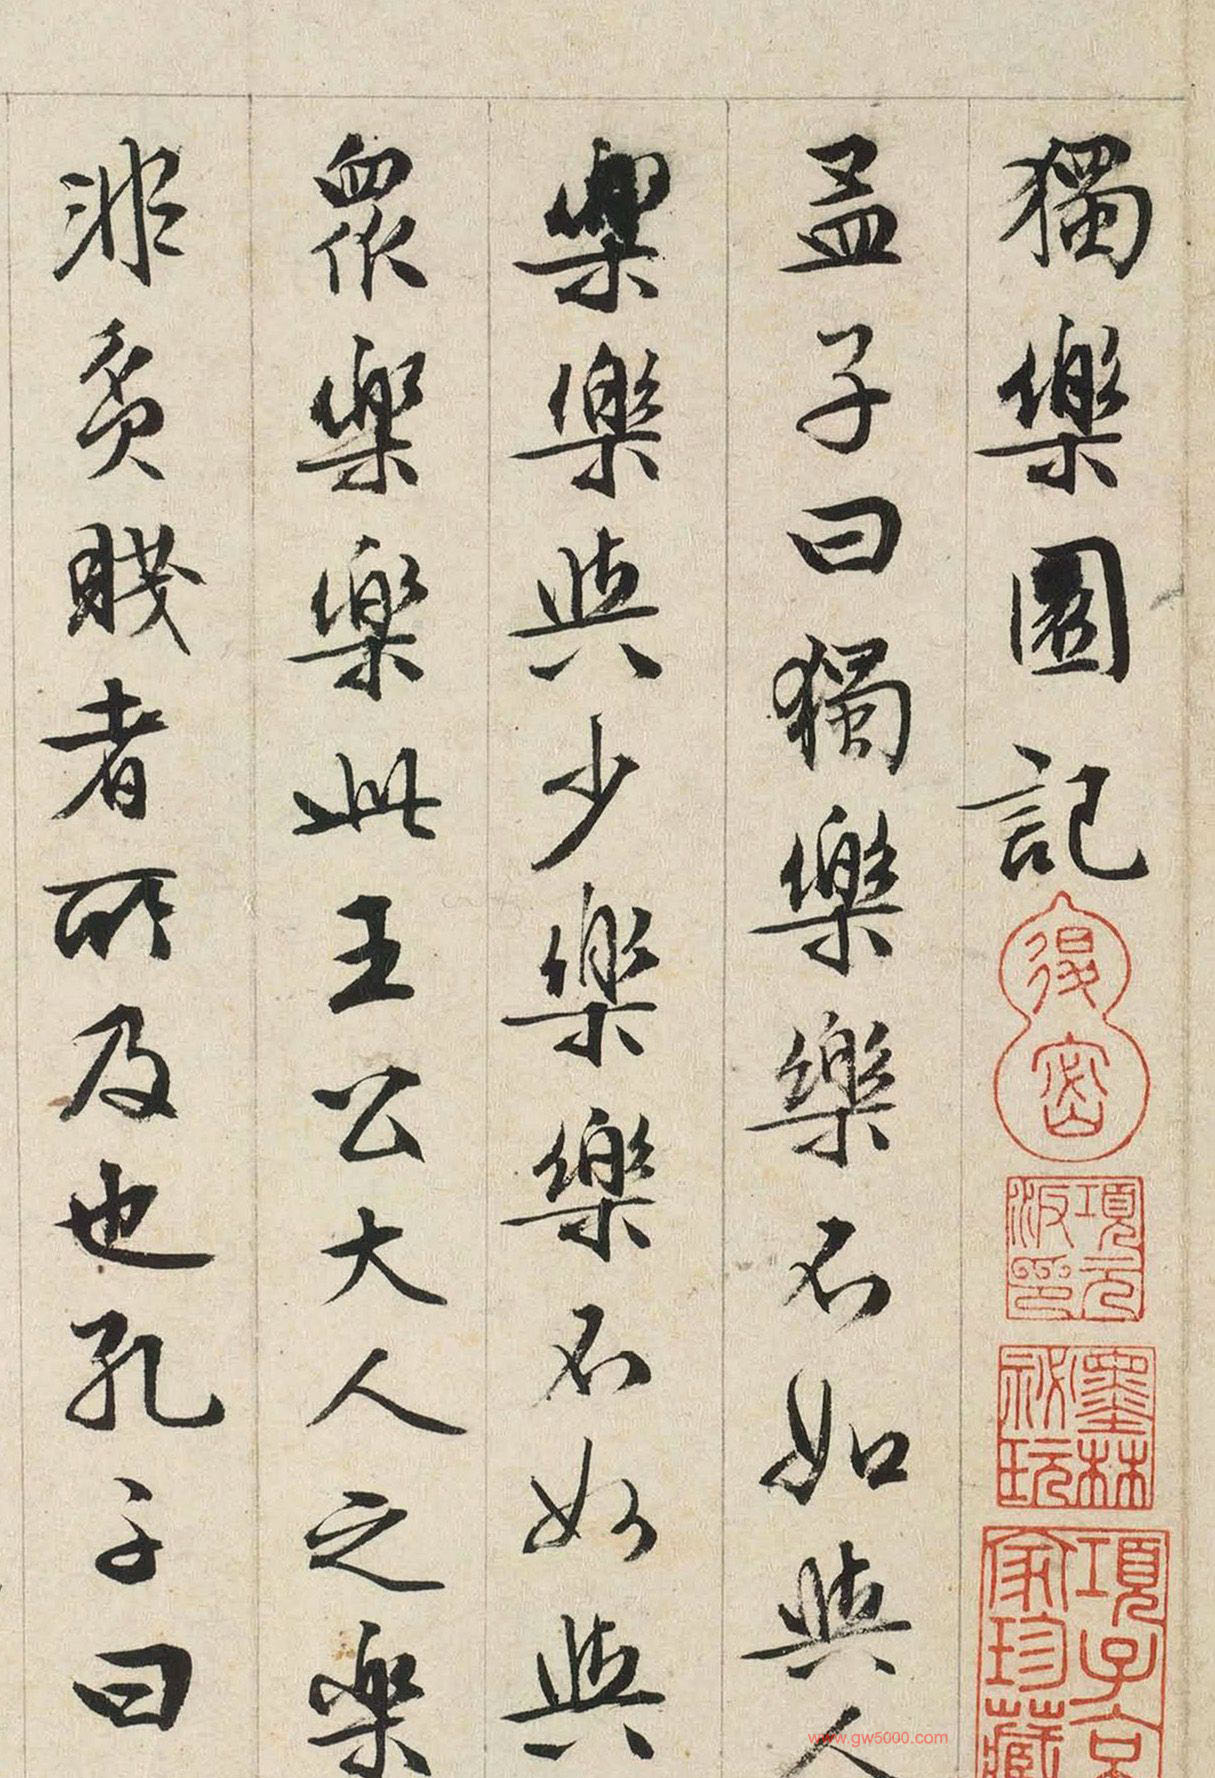 獨樂園記
孟子曰獨樂樂不如與人
樂樂與少樂樂不如與
眾樂樂此王公大人之樂
非貧賤者所及也孔子曰
項元汴印
墨林祕玩
項子京家珍藏
www.gw5000.com